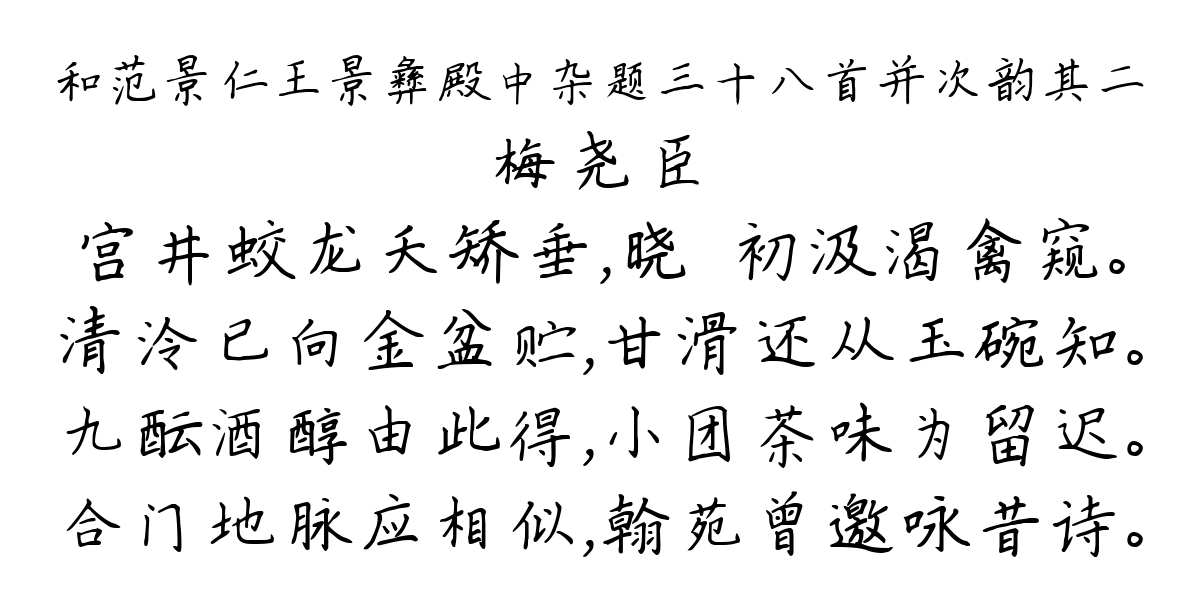 和范景仁王景彝殿中杂题三十八首并次韵其二
梅尧臣
宫井蛟龙夭矫垂,晓 初汲渴禽窥。
清泠已向金盆贮,甘滑还从玉碗知。
九酝酒醇由此得,小团茶味为留迟。
合门地脉应相似,翰苑曾邀咏昔诗。